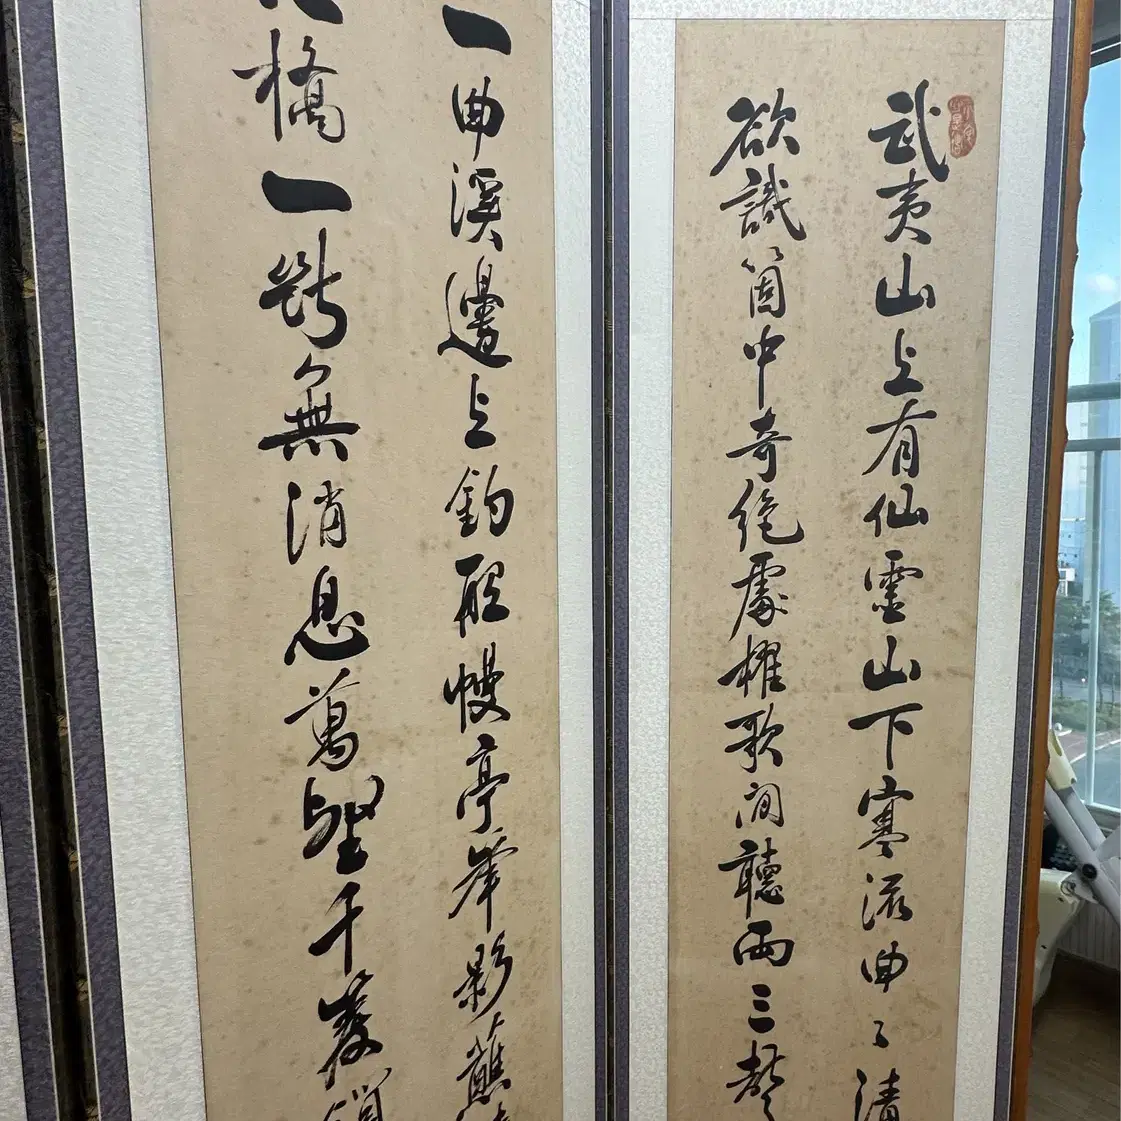 武夷山上有仙靈山下寒流曲〻清
欲識箇中奇絶處櫂歌閒聽兩三聲
一曲溪邊上釣船幔亭峯影蘸
橋一斷無消息萬壑千巖鎖